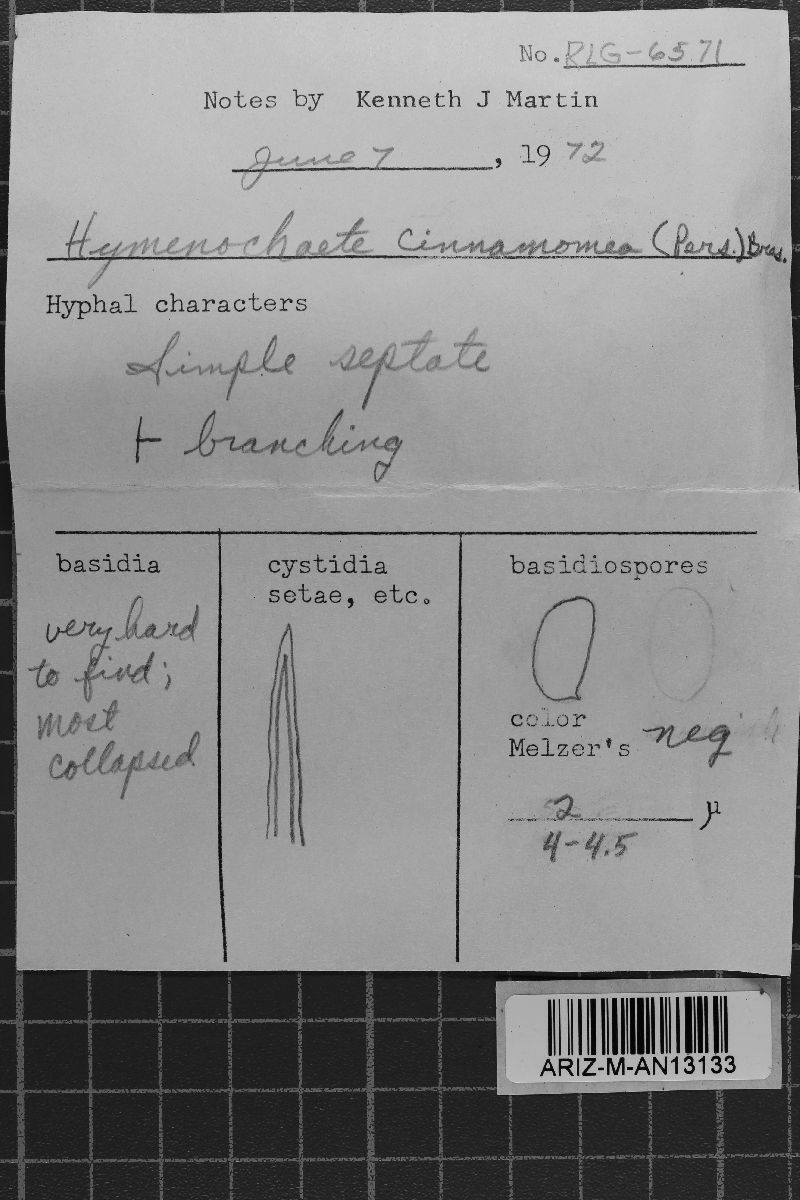 No. RLG-6571
Notes by Kenneth J Martin
June 7, 1972
Hymenochaete cinnamomea (Pers.) Bres.
Hyphal characters
Simple septate
+ branching
basidia
very hard
to find;
most
collapsed
cystidia
setae, etc.
basidiospores
color
Melzer's neg
2 µ
4-4.5
ARIZ-M-AN13133